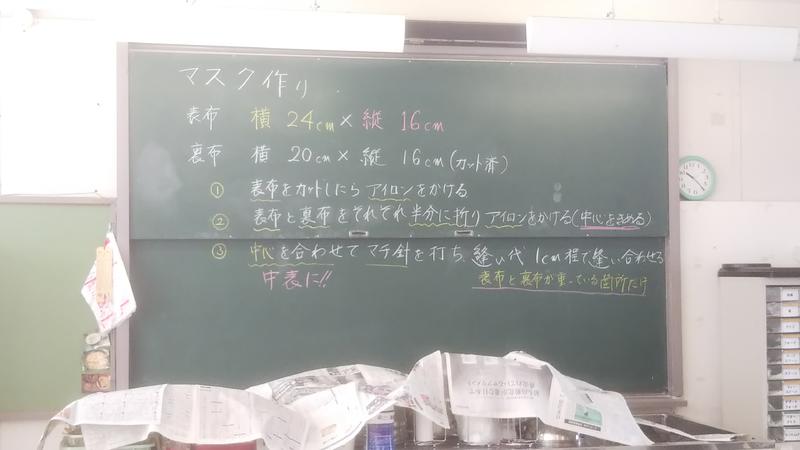 マスク作り
表布 横 24cm × 縦 16cm
裏布 横 20cm × 縦 16cm (カット済)
① 表布をカットしたら アイロンをかける
② 表布と裏布をそれぞれ半分に折り アイロンをかける(中心をきめる)
③ 中心を合わせて マチ針を打ち、縫い代 1cm程で縫い合わせる
中表に!! 表布と裏布が重っている箇所だけ